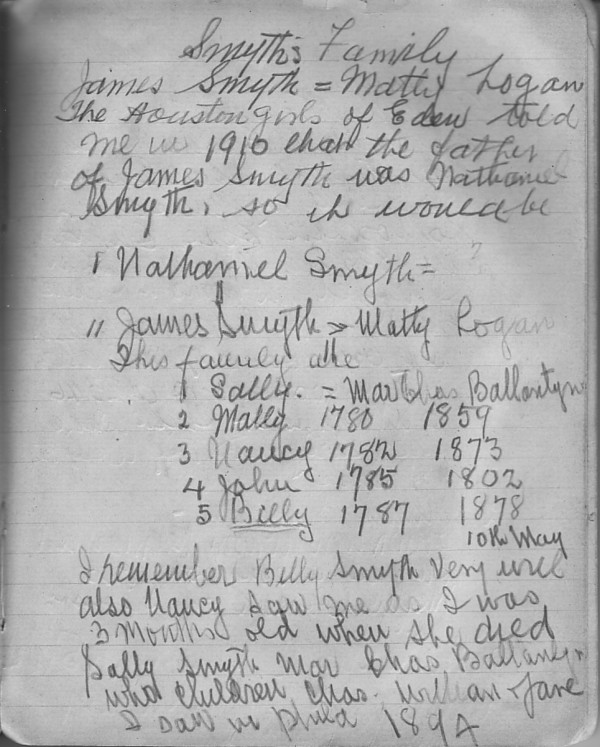 Smyth's Family
James Smyth = Matty Logan
The Houston girls of Eden told
me in 1910 that the father
of James Smyth was Nathaniel
Smyth, so it would be
1 Nathaniel Smyth = ?
11 James Smyth = Matty Logan
This family are
1 Sally. = Mar Chas Ballantyne
2 Matty 1780 1859
3 Nancy 1782 1873
4 John 1785 1802
5 Billy 1787 1878
10th May
I remember Billy Smyth very well
also Nancy saw me as I was
3 months old when she died
Sally Smyth mar Chas Ballantyn
who children Chas. william & Jane
I saw in Phila 1894